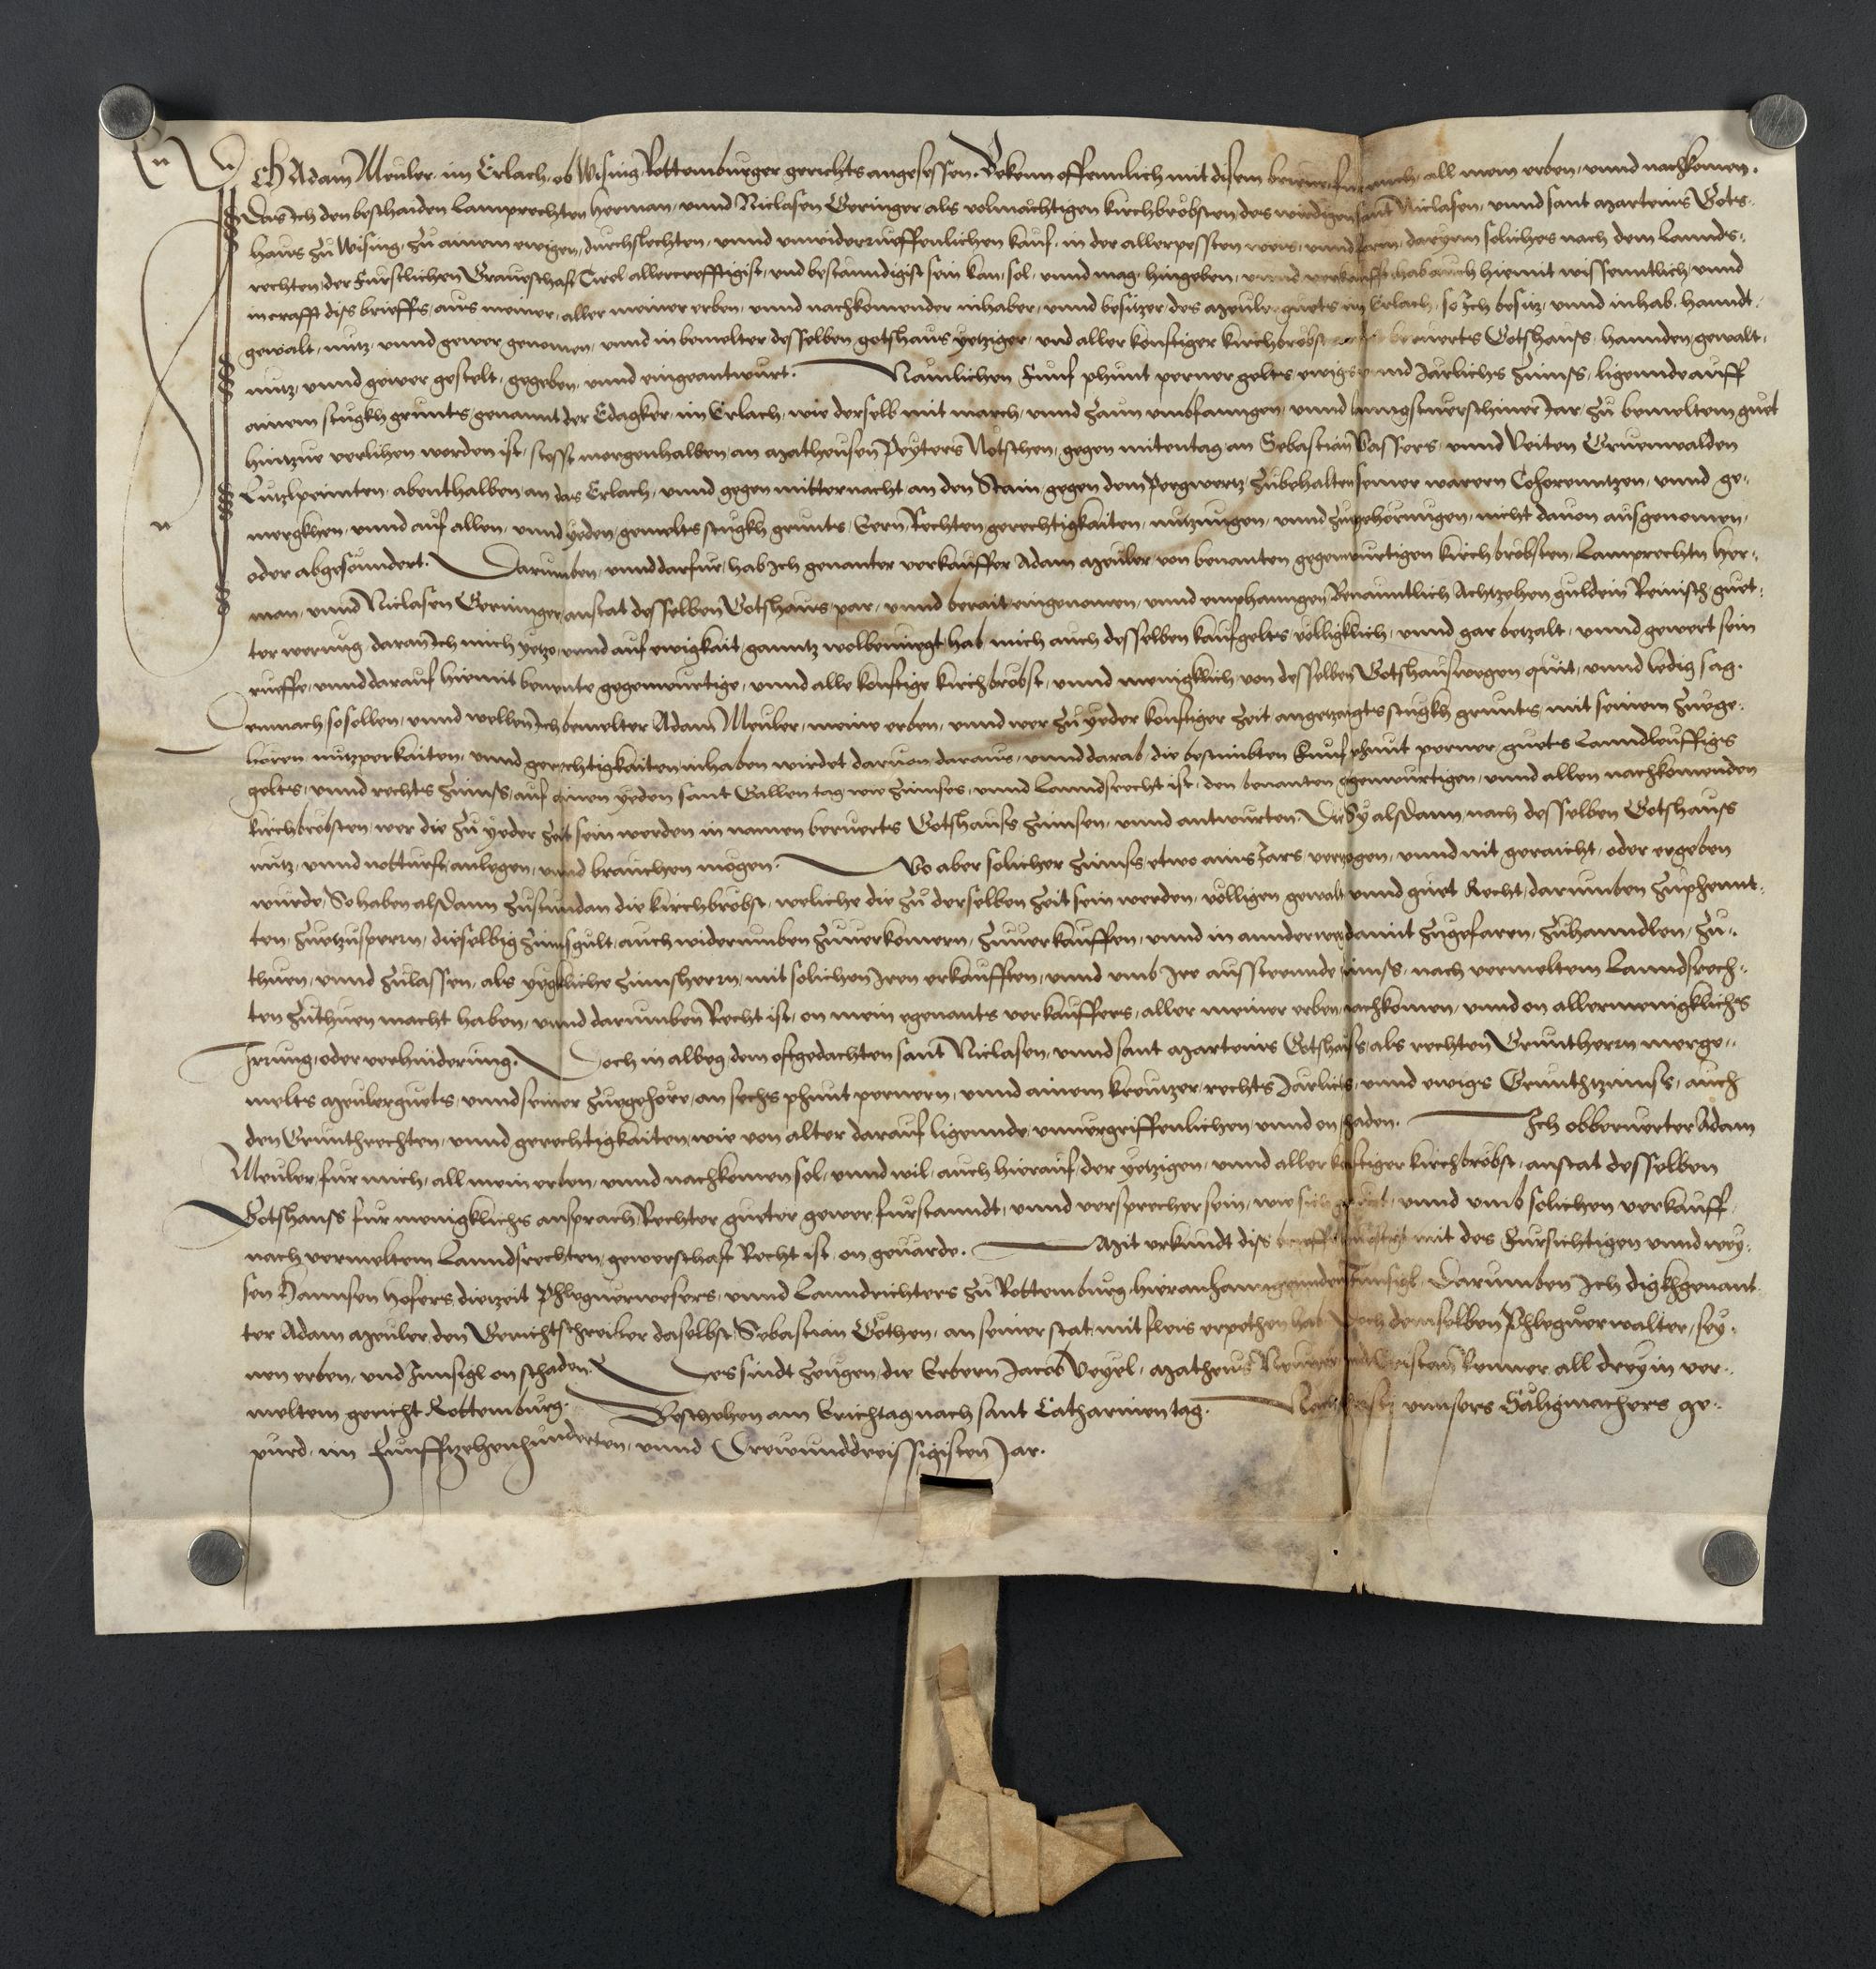 Ich Adam Meuler im Erlach ob Wising Rottemburger gerichts angesessen. Bekenn offenntlich mit disem brieue fur mich all mein erben vnnd nachkomen.
Das ich den beschaiden Lamprechten Herman vnnd Niclasen Geringer als volmächtigen kirchbröbsten des wirdigen sant Niclasen vnnd sant Marteins Gots-
haus zu Wising zu ainem ewigen durchslechten vnnd vnwiderrueffenlichen kauf in der allerpessten weis vnnd form darynn soliches nach dem Lannds-
rechten der Furstlichen Graueschaft Tirol allercrefftigist vnd bestanndigist sein kan sol vnnd mag hingeben vnnd verkaufft hab auch hiemit wissenntlich vnnd
in crafft diss brieffs aus meiner aller meiner erben vnnd nachkomender inhaber vnnd besitzer des Meuler guets im Erlach so Ich besitz vnnd inhab hanndt
gewalt nutz vnnd gewer genomen vnnd in bemelter desselben gotshaus yetziger vnd aller konftiger kirchbröbst beruerts Gotshauss hannden gewalt
nutz vnnd gewer gestelt gegeben vnnd eingeantwurt. Namlichen Funf phunt perner gelts ewigs vnnd Järlichs Zinnss ligennde auff
ainem stugkh grunts genannt der Edagker im Erlach wie derselb mit march vnnd Zaun vmbfanngen vnnd lanngstuerschiner Jar zu bemeltem guet
hintzue verlihen worden ist stosst morgenhalben an Matheusen Peyters Nötschen gegen mitentag an Sebastian Vassers vnnd Veiten Gruenwalden
Lutzlpeinten abenthalben an das Erlach vnnd gegen mitternacht an den Stain gegen dem Pergwertz zubehalten seiner waren Coherenntzen vnnd ge-
mergkhen vnnd auf allen vnnd yeden gemelts stugkh grunts Eern Rechten gerechtigkaiten nutzungen vnnd zugehorungen nicht dauon ausgenomen
oder abgesoundert. Darumben vnnd darfur hab Ich genanter verkauffer Adam Meuler von benanten gegenwurtigen kirchbröbsten Lamprechtn Her-
man vnnd Niclasen Geringer anstat desselben Gotshaus par vnnd berait eingenomen vnnd emphanngen Benanntlich Achtzehen guldein Reinisch guet-
ter werung daran Ich mich yetzo vnnd auf ewigkait ganntz wolbenuegt hab mich auch desselben kaufgelts völligklich vnnd gar betzalt vnnd gewert sein
rueffe vnnd darauf hiemit benente gegenwurtige vnnd alle konftige kirchbröbst vnnd menigklich von desselben Gotshauswegen quit vnnd ledig sag.
Demnach so sollen vnnd wellen Ich bemelter Adam Meuler meine erben vnnd wer zu yeder konftiger Zeit angetzaigts stugkh grunts mit seinem zuege-
hören nutzperkaiten vnnd gerechtigkaiten inhaben wirdet daruon daraus vnnd darab die bestimbten Funf phunt perner guets Lanndleuffigs
gelts vnnd rechts Zinnss auf ainen yeden sant Gallen tag wie Zinnses vnnd Lanndsrecht ist den benanten gegenwurtigen vnnd allen nachkomenden
kirchbröbsten wer die zu yeder Zeit sein werden in namen beruerts Gotshauss Zinnsen vnnd antwurten. Die Sy alsdann nach desselben Gotshauss
nutz vnnd notturft anlegen vnnd brauchen mögen. Wo aber solicher Zinnss etwo ains Jars vertzogen vnnd nit geraicht oder ergeben
wurde So haben alsdann zustundan die kirchbröbst weliche die zu derselben Zeit sein werden völligen gewalt vnnd guet Recht darumben zuphennt-
ten zuetzusperrn dieselbig Zinnsgult auch widerumben zuuerkomern zuuerkauffen vnnd in annderweg damit zugefaren zuhanndlen zu-
thuen vnnd zulassen als yegkliche Zinnsherrn mit solichen Iren erkaufften vnnd vmb Ire aussteennde Zinnss nach vermeltem Lanndsrech-
ten zuthuen macht haben vnnd darumben Recht ist on mein egenants verkauffers aller meiner erben nachkomen vnnd on allermenigklichs
Irrung oder verhinderung. Doch in albeg dem oftgedachten sant Niclasen vnnd sant Marteins Gotshauss als rechten Gruntherrn merge-
melts Meulerguets vnnd seiner zuegehöre an sechs phunt pernern vnnd ainem kreutzer rechts Järlichs vnnd ewigs Grunthzinnss auch
den Grunthrechten vnnd gerechtigkaiten wie von alter darauf ligennde vnuergriffenlichen vnnd on schaden. Ich obberuerter Adam
Meuler fur mich all mein erben vnnd nachkomen sol vnnd wil auch hierauf der yetzigen vnnd aller konftiger kirchbröbst anstat desselben
Gotshauss fur menigklichs ansprach Rechter gueter gewer furstanndt vnnd versprecher sein wie sich gepurt vnnd vmb solichen verkauff
nach vermeltem Lanndsrechten gewerschaft Recht ist on geuärde. Mit vrkundt diss brieffs mit des Fursichtigen vnnd wey-
sen Hannsen Hofers dietzeit Phleguerwesers vnnd Lanndrichters zu Rottemburg hieran hanngennden Innsigl Darumben Ich digkhgenant-
ter Adam Meuler den Gerichtschreiber daselbst Sebastian Göthen an seiner stat mit fleis erpethen hab Doch demselben Phleguerwalter sey-
nen erben vnd Innsigl on schaden. Des sindt Zeugen die Erbern Jacob Veyel Matheus vnd Cristan Lenner all drey in ver-
meltem gericht Rottemburg. Beschehen am Erichtag nach sant Catharinen tag. Nach Cristj vnnsers Säligmachers ge-
purd im Funfftzehenhunderten vnnd Drewunddreissigisten Jar.